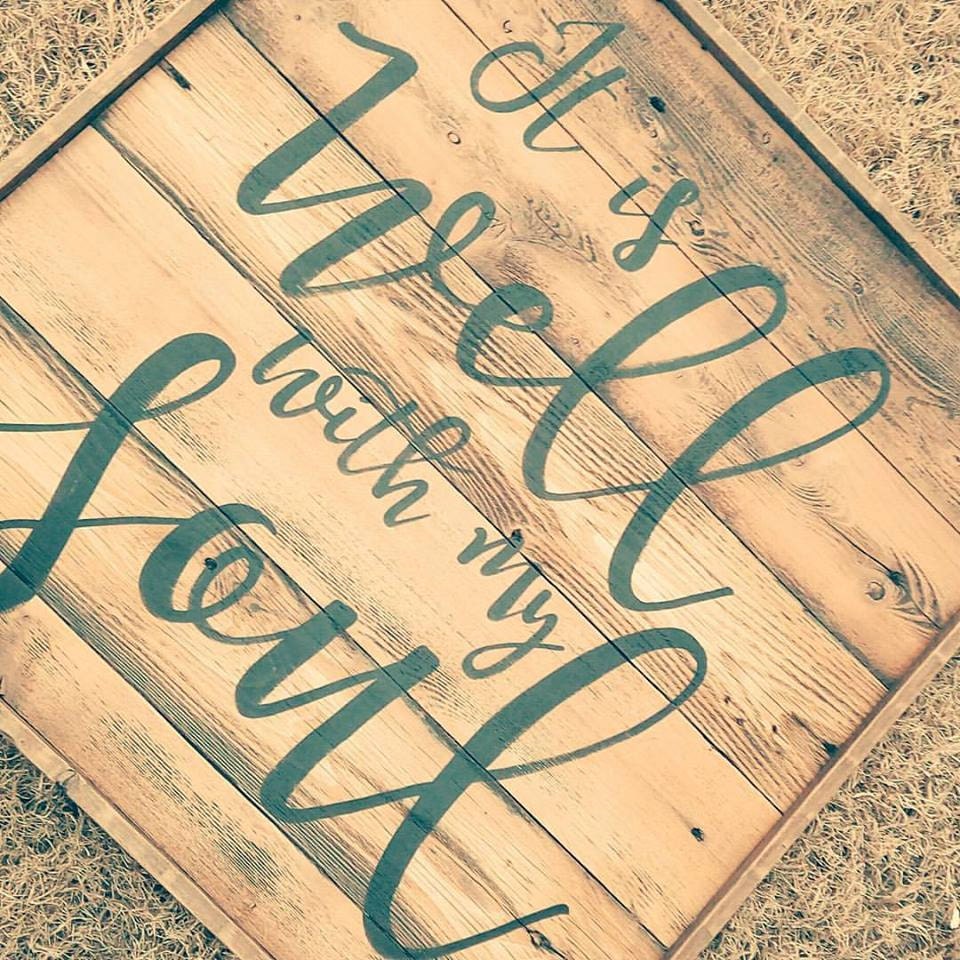 It is
Well
with my
Soul